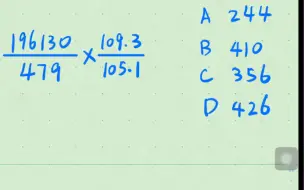 196130/479 × 109.3/105.1
A 244
B 410
C 356
D 426